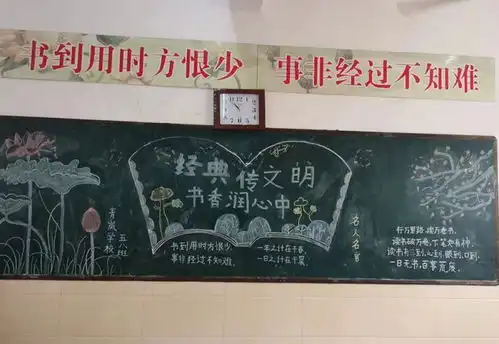 书到用时方恨少
事非经过不知难
经典传文明
书香润心中
青岚学校
五八班
书到用时方恨少
事非经过不知难.
一年之计在于春
一日之计在于晨.
名人名言
行万里路,读万卷书.
读书破万卷,下笔如有神.
读书有三到,心到,眼到,口到.
一日无书,百事荒废.